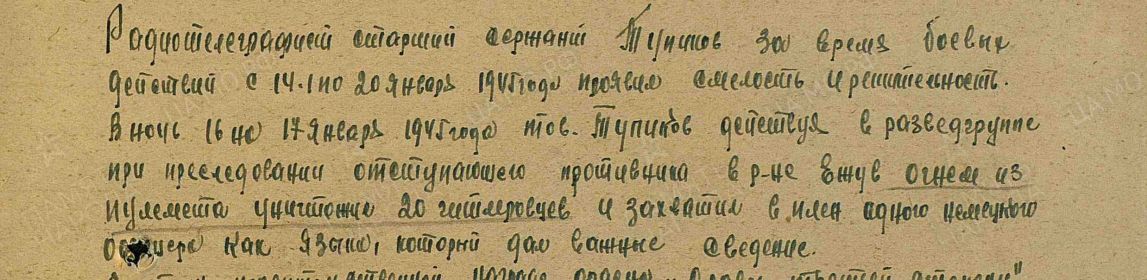 Радиотелеграфист старший сержант Тупиков за время боевых
действий с 14.1 по 20 января 1945 года проявил смелость и решительность.
В ночь 16 на 17 января 1945 года тов. Тупиков действуя в разведгруппе
при преследовании отступающего противника в р-не Ежув огнем из
пулемета уничтожил 20 гитлеровцев и захватил в плен одного немецкого
офицера как языка, который дал важные сведение.
награде ордена "Славы третьей степени"